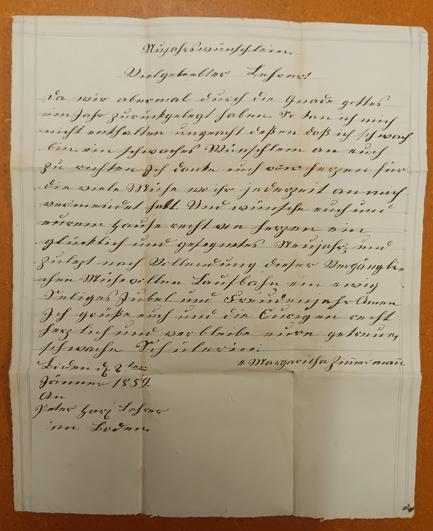 Neujahrswünschlein.
Vielgeliebter Lehrer!
Da wir abermal durch die Gnade gottes
ein Jahr zurückgelegt haben. So kan ich mich
nicht enthalten ungeacht deßen daß ich schwach
bin ein schwaches Wünschlein an euch
zu richten Ich danke euch von herzen für
die viele Mühe wo ihr jederzeit an mich
verwendet habt. Und wünsche euch und
eurem Hause recht von herzen ein
glücklich und gesegnetes Neujahr, und
zuletzt nach Vollendung dieser Vergängli=
chen Mühevollen Laufbahn ein ewig
Seliges Jubel und Freudenjahr Amen
Ich grüße euch und die Eurigen recht
herzlich und verbleibe eure getreue,
schwache Schülerin:
Margaritha Zimmermann
Boden d. 2ten
Jänner 1859.
An
Peter Hari Lehrer
im Boden.